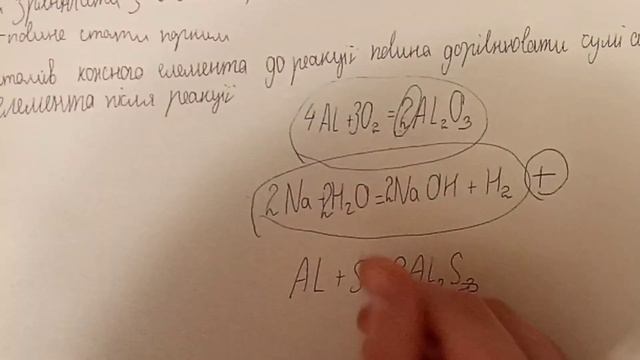 зрівнювати з
повине стати парним
кожного елемента до реакції повина дорівнювати сумі
елемента після реакції
4AL+3O₂=2AL₂O₃
2Na+2H₂O=2NaOH+H₂ +
AL+S 2AL₂S₃